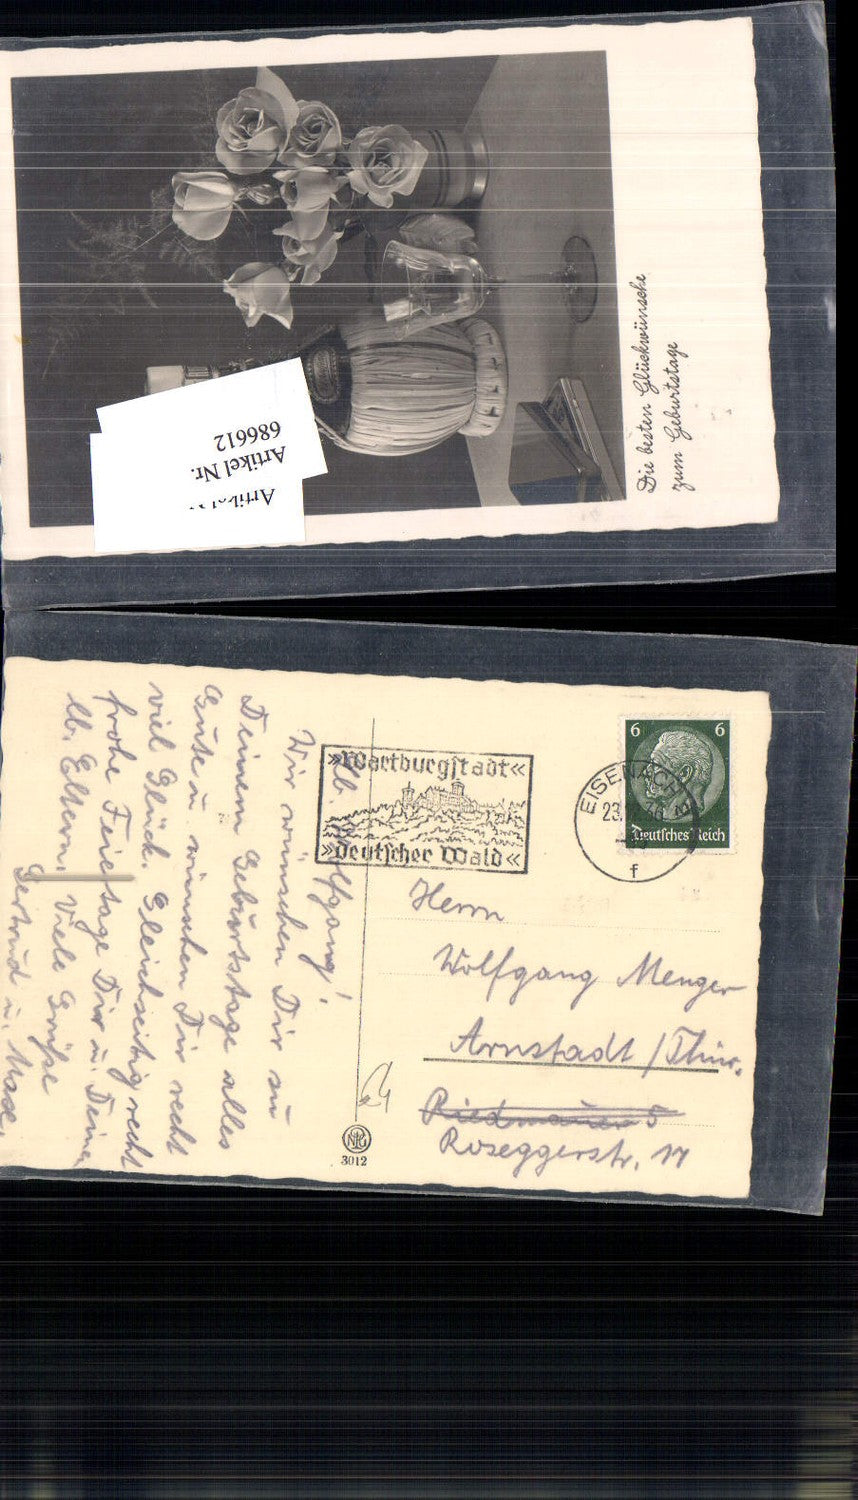 Die besten Glückwünsche
zum Geburtstage
Artikel Nr.
686612
6 6
Deutsches Reich
EISENACH
23.
f
»Wartburgstadt«
»deutscher Wald«
Herrn
Wolfgang Menger
Arnstadt / Thür.
Riedmauer 5
Roseggerstr. 17
lb. Wolfgang!
Wir wünschen Dir zu
Deinem Geburtstage alles
Gute u. wünschen Dir recht
viel Glück. Gleichzeitig recht
frohe Feiertage Dir u. Deinen
lb. Eltern. Viele Grüße
Gertrud u. Max.
3012